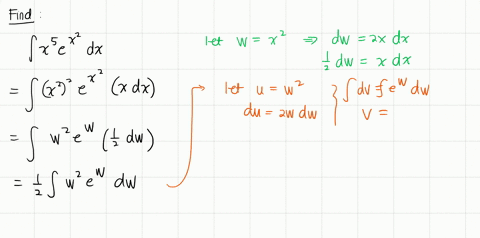 Find:
∫ x⁵ e^(x²) dx
= ∫ (x²)² e^(x²) (x dx)
= ∫ w² e^w (½ dw)
= ½ ∫ w² e^w dw
let w = x² ⇒ dw = 2x dx
½ dw = x dx
let u = w²
du = 2w dw
∫ dv = ∫ e^w dw
v =